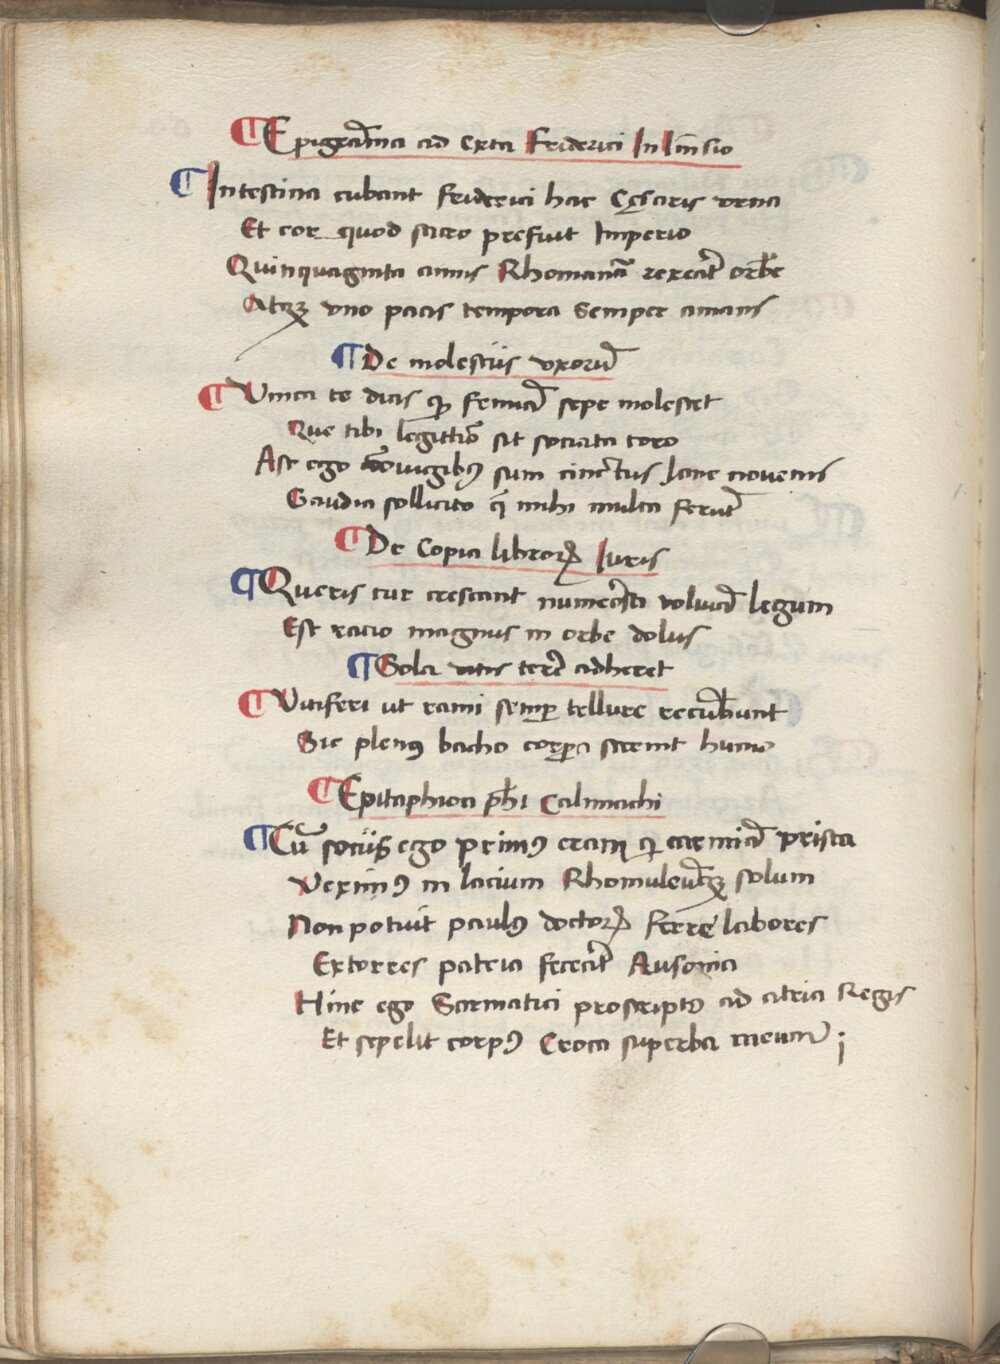 ¶Epigrām̄a ad exta Friderici In Linsio
¶Intestina cubant friderici hac Cęsaris urna
Et cor quod sacro prefuit Imperio
Quinquaginta annis Rhomanā rexerāt orbē
Atqꝫ uno pacis tempora Semper amans
¶De molestiis uxorū
¶Unica te dicis qꝫ femīa sepe molestet
Que tibi legittīo sit sociata toro
Ast ego coniugibꝰ sum cinctus Iane novenis
Gaudia sollicito q̄ mihi multa ferūt
¶De Copia librorꝝ Iuris
¶Queris cur crescant numerosa volumīa legum
Est racio magnus in orbe dolus
¶Sola vitis terrē adheret
¶Vitiferi ut rami semꝑ tellure recūbunt
Sic plenꝰ bacho corꝑa sternit humo
¶Epitaphion ph̄i Calimachi
¶Cū sociis ego primꝰ eram qi carmīa prisca
Veximꝰ in lacium Rhomuleūqꝫ solum
Non potuit paulꝰ doctorꝝ ferre labores
Extorres patria fecerāt Ausonia
Hinc ego Sarmatici proscriptꝰ ad atria Regis
Et sepelit corpꝰ Croca superba meum ;